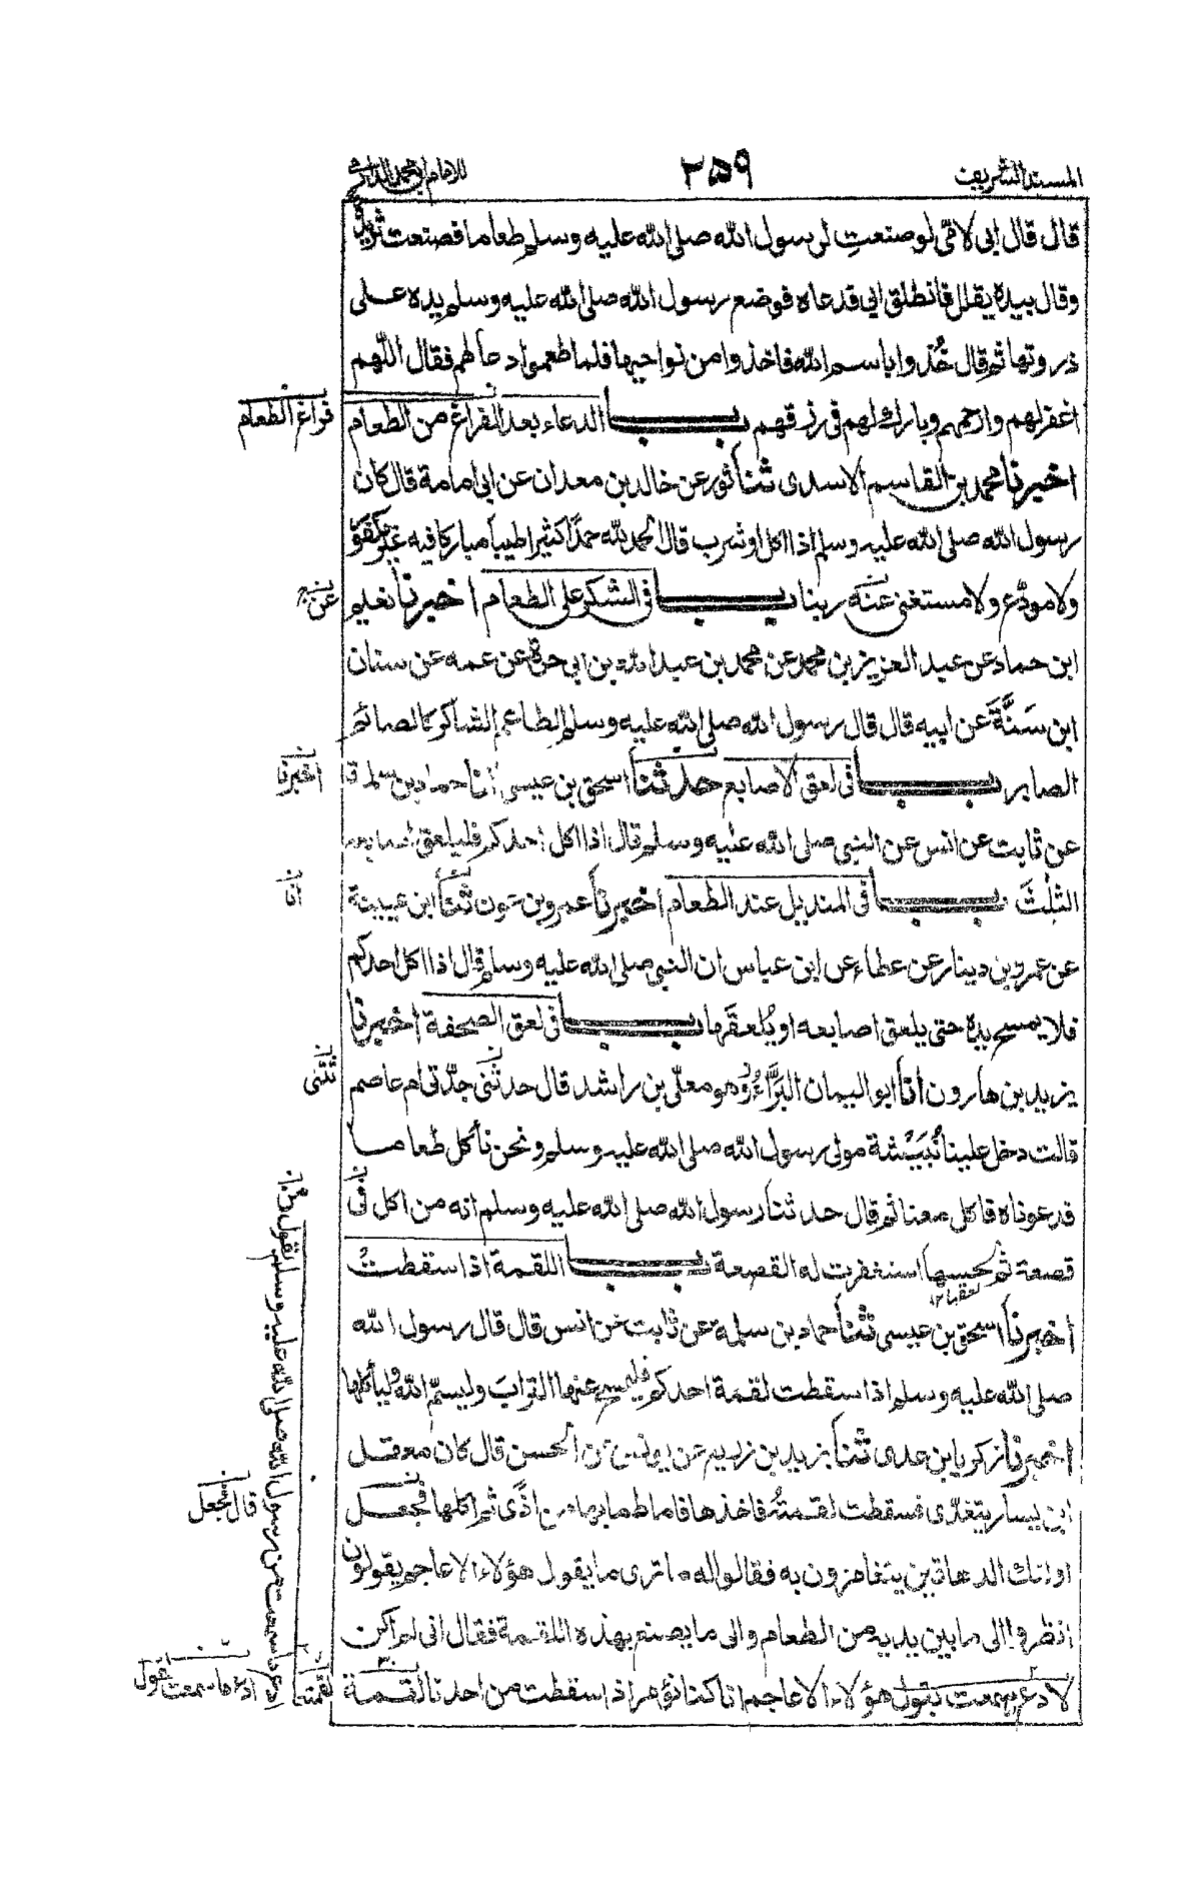 المسند الشريف ٢٥٩ للامام ابى محمد الدارمى
قال قال ابى لامى لو صنعتِ لرسول الله صلى الله عليه وسلم طعاما فصنعت ثريدة
وقال بيده يقلل فانطلق ابى فدعاه فوضع رسول الله صلى الله عليه وسلم يده على
ذروتها ثم قال خُذوا باسم الله فاخذوا من نواحيها فلما طعموا دعا لهم فقال اللّٰهم
اغفر لهم وارحمهم وبارك لهم فى رزقهم باب الدعاء بعد الفراغ من الطعام
فراغ الطعام
اخبرنا محمد بن القاسم الاسدى ثنا ثور عن خالد بن معدان عن ابى امامة قال كان
رسول الله صلى الله عليه وسلم اذا اكل او شرب قال الحمد لله حمدًا كثيرا طيبا مباركا فيه غير مكفور
ولا مودّع ولا مستغنى عنه ربنا باب فى الشكر على الطعام اخبرنا نعيم
عن
ابن حماد عن عبد العزيز بن محمد عن محمد بن عبد الله بن ابى حرة عن عمه عن سنان
ابن سَنَّةَ عن ابيه قال قال رسول الله صلى الله عليه وسلم الطاعم الشاكر كالصائم
الصابر باب فى لعق الاصابع حدثنا اسحق بن عيسى انا حماد بن سلمة
اخبرنا
عن ثابت عن انس عن النبى صلى الله عليه وسلم قال اذا اكل احدكم فليلعق اصابعه
الثلٰثَ باب فى المنديل عند الطعام اخبرنا عمرو بن عون ثنا ابن عيينة
انا
عن عمرو بن دينار عن عطاء عن ابن عباس ان النبى صلى الله عليه وسلم قال اذا اكل احدكم
فلا يمسح يده حتى يلعق اصابعه او يُلعقَها باب فى لعق الصحفة اخبرنا
يزيد بن هارون انا ابو اليمان البَرَّاءُ وهو معلّى بن راشد قال حدثنى جدّتى ام عاصم
ثتنى
قالت دخل علينا نُبَيْشة مولى رسول الله صلى الله عليه وسلم ونحن نأكل طعاما
فدعوناه فاكل معنا ثم قال حدثنا رسول الله صلى الله عليه وسلم انه من اكل فى
قصعة ثم لحسها استغفرت له القصعة باب اللقمة اذا سقطتْ
لعقها ١٢
اخبرنا اسحق بن عيسى ثنا حماد بن سلمة عن ثابت عن انس قال قال رسول الله
صلى الله عليه وسلم اذا سقطت لقمة احدكم فليمسح عنها التراب وليسمّ الله وليأكلها
اخبرنا زكريا بن عدى ثنا يزيد بن زريع عن يونس عن الحسن قال كان معقل
ابن يسار يتغدّى فسقطت لقمتُه فاخذها فاماط ما بها من اذًى ثم اكلها فجعل
قال فجعل
اولئك الدهاقين يتغامزون به فقالوا له ما ترى ما يقول هؤلاء الاعاجم يقولون
انظروا الى ما بين يديه من الطعام والى ما يصنع بهذه اللقمة فقال انى لم اكن
لادع ما سمعت بقول هؤلاء الاعاجم انا كنا نؤمر اذا سقطت من احدنا لقمة
لقمته
ادع ما سمعت من رسول الله صلى الله عليه وسلم بقول
ادع ما سمعت لقول